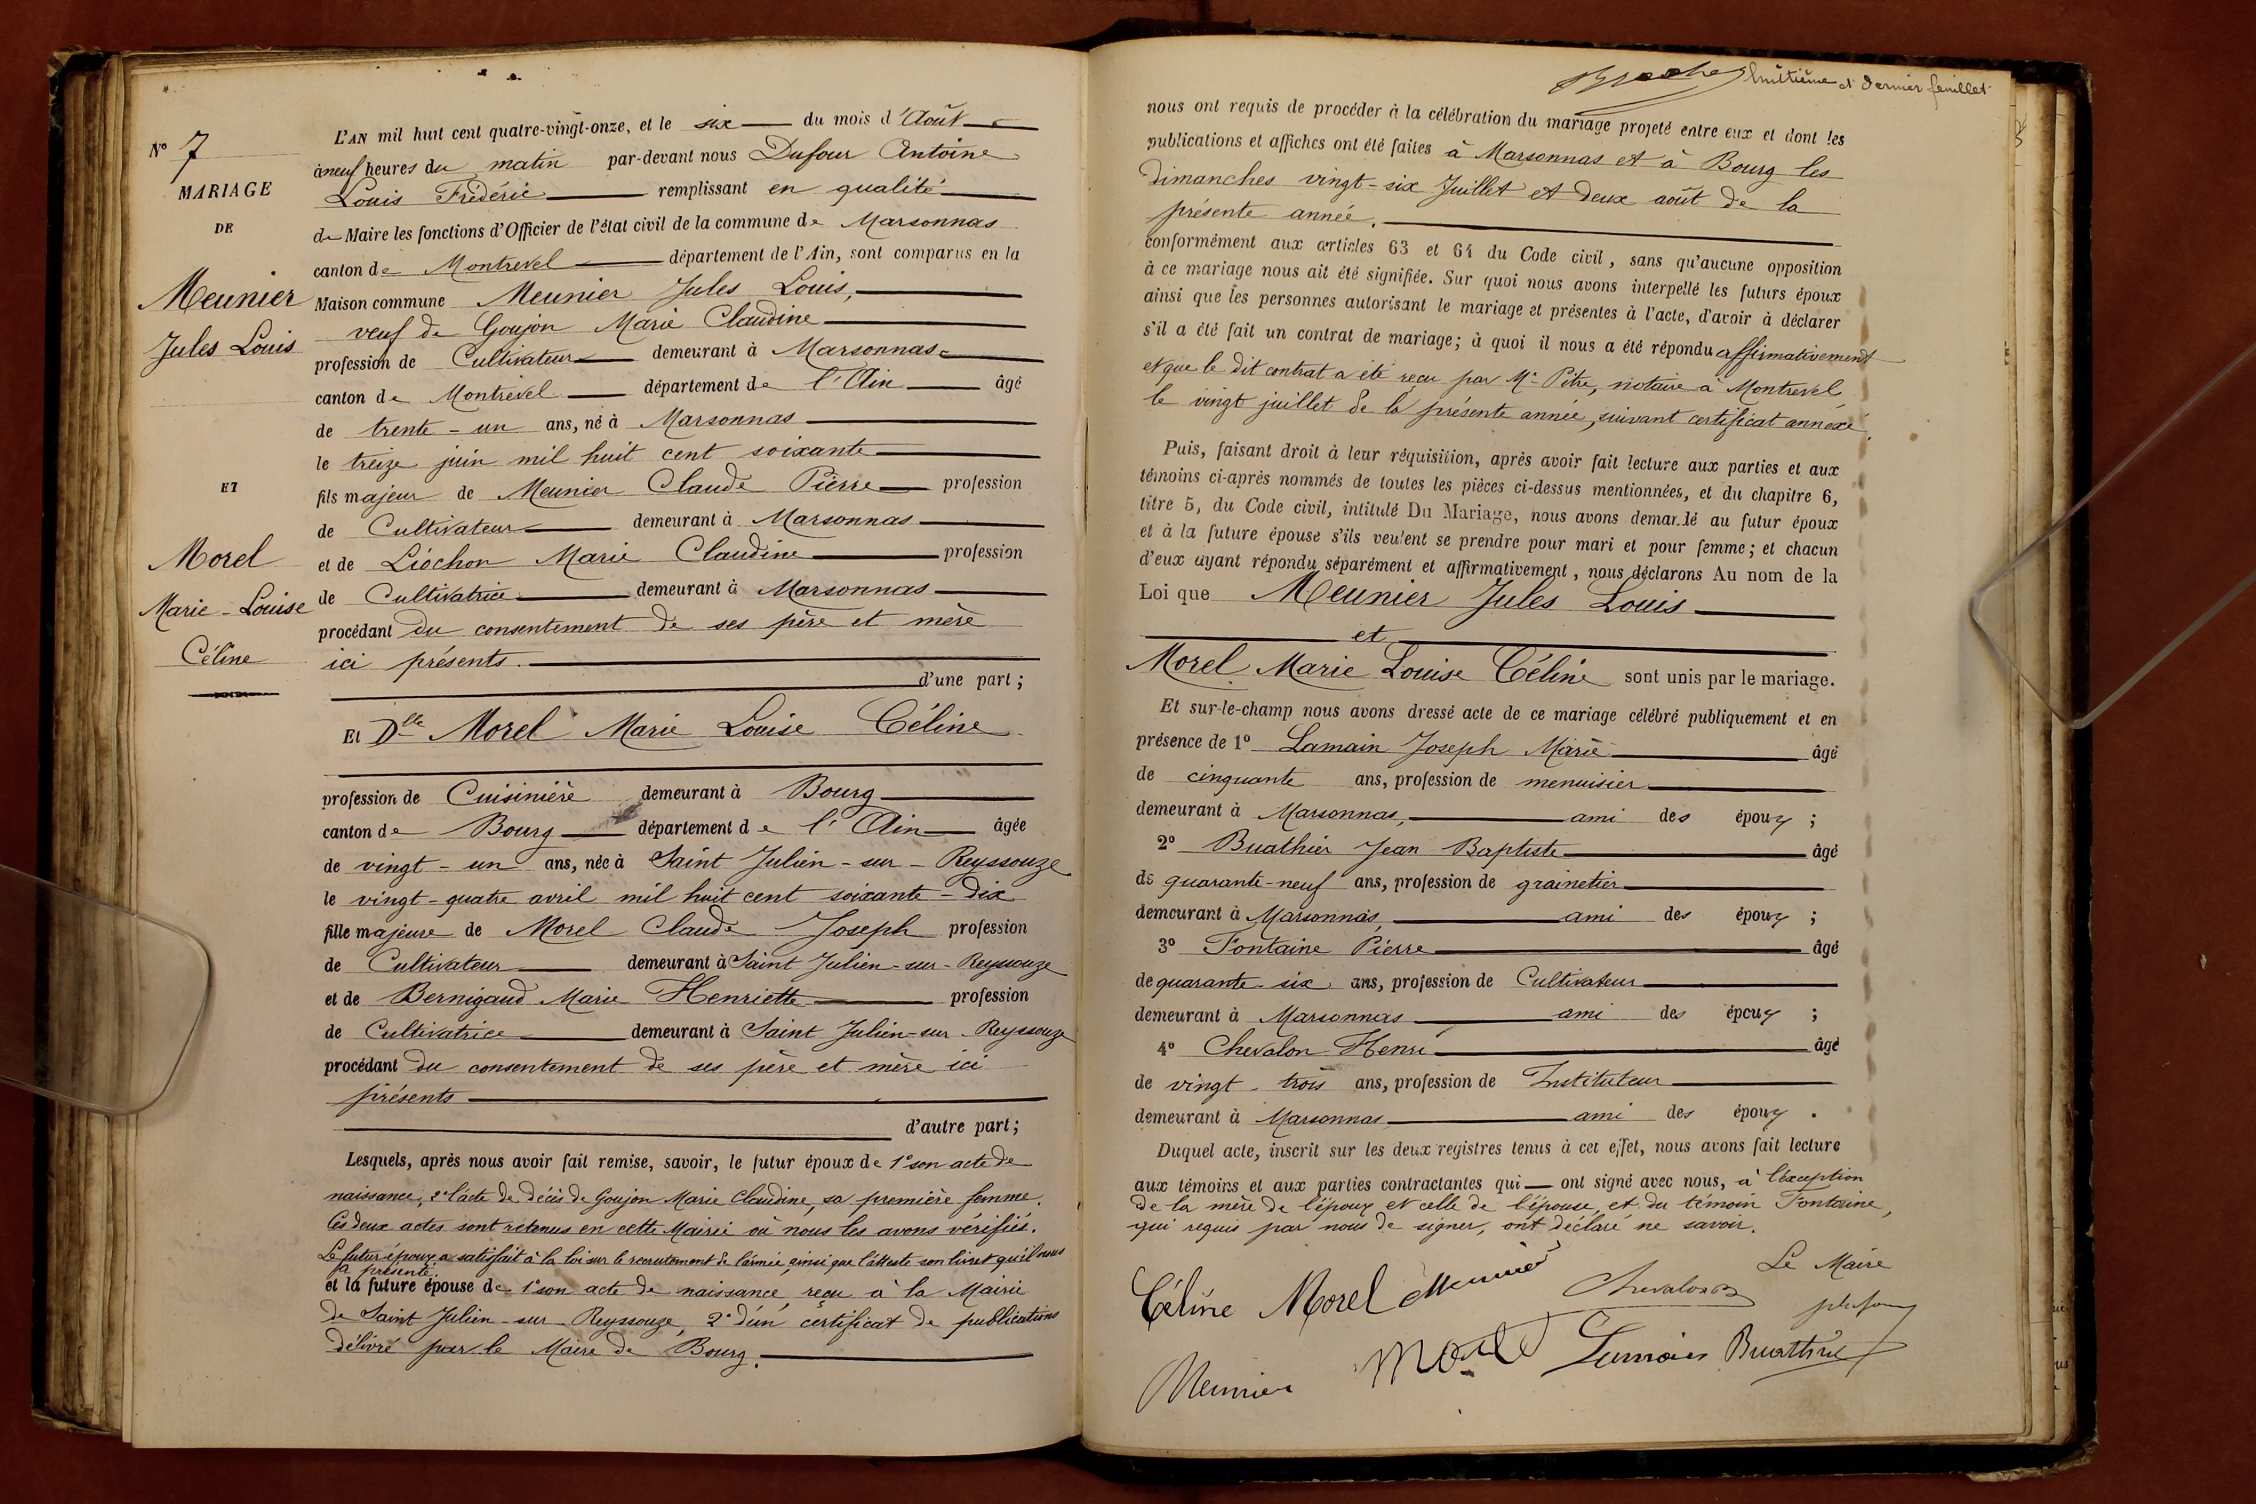 N° 7
MARIAGE
DE
Meunier
Jules Louis
ET
Morel
Marie-Louise
Céline
L'AN mil huit cent quatre-vingt-onze, et le six du mois d'Août
à neuf heures du matin par-devant nous Dufour Antoine
Louis Frédéric remplissant en qualité
de Maire les fonctions d'Officier de l'état civil de la commune de Marsonnas
canton de Montrevel département de l'Ain, sont comparus en la
Maison commune Meunier Jules Louis,
veuf de Goujon Marie Claudine
profession de Cultivateur demeurant à Marsonnas
canton de Montrevel département de l'Ain âgé
de trente-un ans, né à Marsonnas
le treize juin mil huit cent soixante
fils majeur de Meunier Claude Pierre profession
de Cultivateur demeurant à Marsonnas
et de Liochon Marie Claudine profession
de Cultivatrice demeurant à Marsonnas
procédant du consentement de ses père et mère
ici présents.
d'une part;
Et Dlle Morel Marie Louise Céline
profession de Cuisinière demeurant à Bourg
canton de Bourg département de l'Ain âgée
de vingt-un ans, née à Saint Julien-sur-Reyssouze
le vingt-quatre avril mil huit cent soixante-dix
fille majeure de Morel Claude Joseph profession
de Cultivateur demeurant à Saint Julien-sur-Reyssouze
et de Bernigaud Marie Henriette profession
de Cultivatrice demeurant à Saint Julien-sur-Reyssouze
procédant du consentement de ses père et mère ici
présents
d'autre part;
Lesquels, après nous avoir fait remise, savoir, le futur époux de 1° son acte de
naissance, 2° l'acte de décès de Goujon Marie Claudine, sa première femme.
Ces deux actes sont retenus en cette Mairie où nous les avons vérifiés.
Le futur époux a satisfait à la loi sur le recrutement de l'armée, ainsi que l'atteste son livret qu'il nous
a présenté.
et la future épouse de 1° son acte de naissance, reçu à la Mairie
de Saint Julien-sur-Reyssouze, 2° d'un certificat de publications
délivré par le Maire de Bourg.
huitième et dernier feuillet
nous ont requis de procéder à la célébration du mariage projeté entre eux et dont les
publications et affiches ont été faites à Marsonnas et à Bourg les
dimanches vingt-six Juillet et deux août de la
présente année.
conformément aux articles 63 et 64 du Code civil, sans qu'aucune opposition
à ce mariage nous ait été signifiée. Sur quoi nous avons interpellé les futurs époux
ainsi que les personnes autorisant le mariage et présentes à l'acte, d'avoir à déclarer
s'il a été fait un contrat de mariage; à quoi il nous a été répondu affirmativement
et que le dit contrat a été reçu par Me Pitre, notaire à Montrevel
le vingt juillet de la présente année, suivant certificat annexé.
Puis, faisant droit à leur réquisition, après avoir fait lecture aux parties et aux
témoins ci-après nommés de toutes les pièces ci-dessus mentionnées, et du chapitre 6,
titre 5, du Code civil, intitulé Du Mariage, nous avons demandé au futur époux
et à la future épouse s'ils veulent se prendre pour mari et pour femme; et chacun
d'eux ayant répondu séparément et affirmativement, nous déclarons Au nom de la
Loi que Meunier Jules Louis
et
Morel Marie Louise Céline sont unis par le mariage.
Et sur-le-champ nous avons dressé acte de ce mariage célébré publiquement et en
présence de 1° Lamain Joseph Marie âgé
de cinquante ans, profession de menuisier
demeurant à Marsonnas, ami des époux ;
2° Buathier Jean Baptiste âgé
de quarante-neuf ans, profession de grainetier
demeurant à Marsonnas, ami des époux ;
3° Fontaine Pierre âgé
de quarante six ans, profession de Cultivateur
demeurant à Marsonnas ami des époux ;
4° Chevalon Henri âgé
de vingt-trois ans, profession de Instituteur
demeurant à Marsonnas ami des époux .
Duquel acte, inscrit sur les deux registres tenus à cet effet, nous avons fait lecture
aux témoins et aux parties contractantes qui ont signé avec nous, à l'exception
de la mère de l'époux et celle de l'épouse, et du témoin Fontaine,
qui requis par nous de signer, ont déclaré ne savoir.
Le Maire
Céline Morel Meunier Chevalon Dufour
Meunier Morel Lamain Buathier